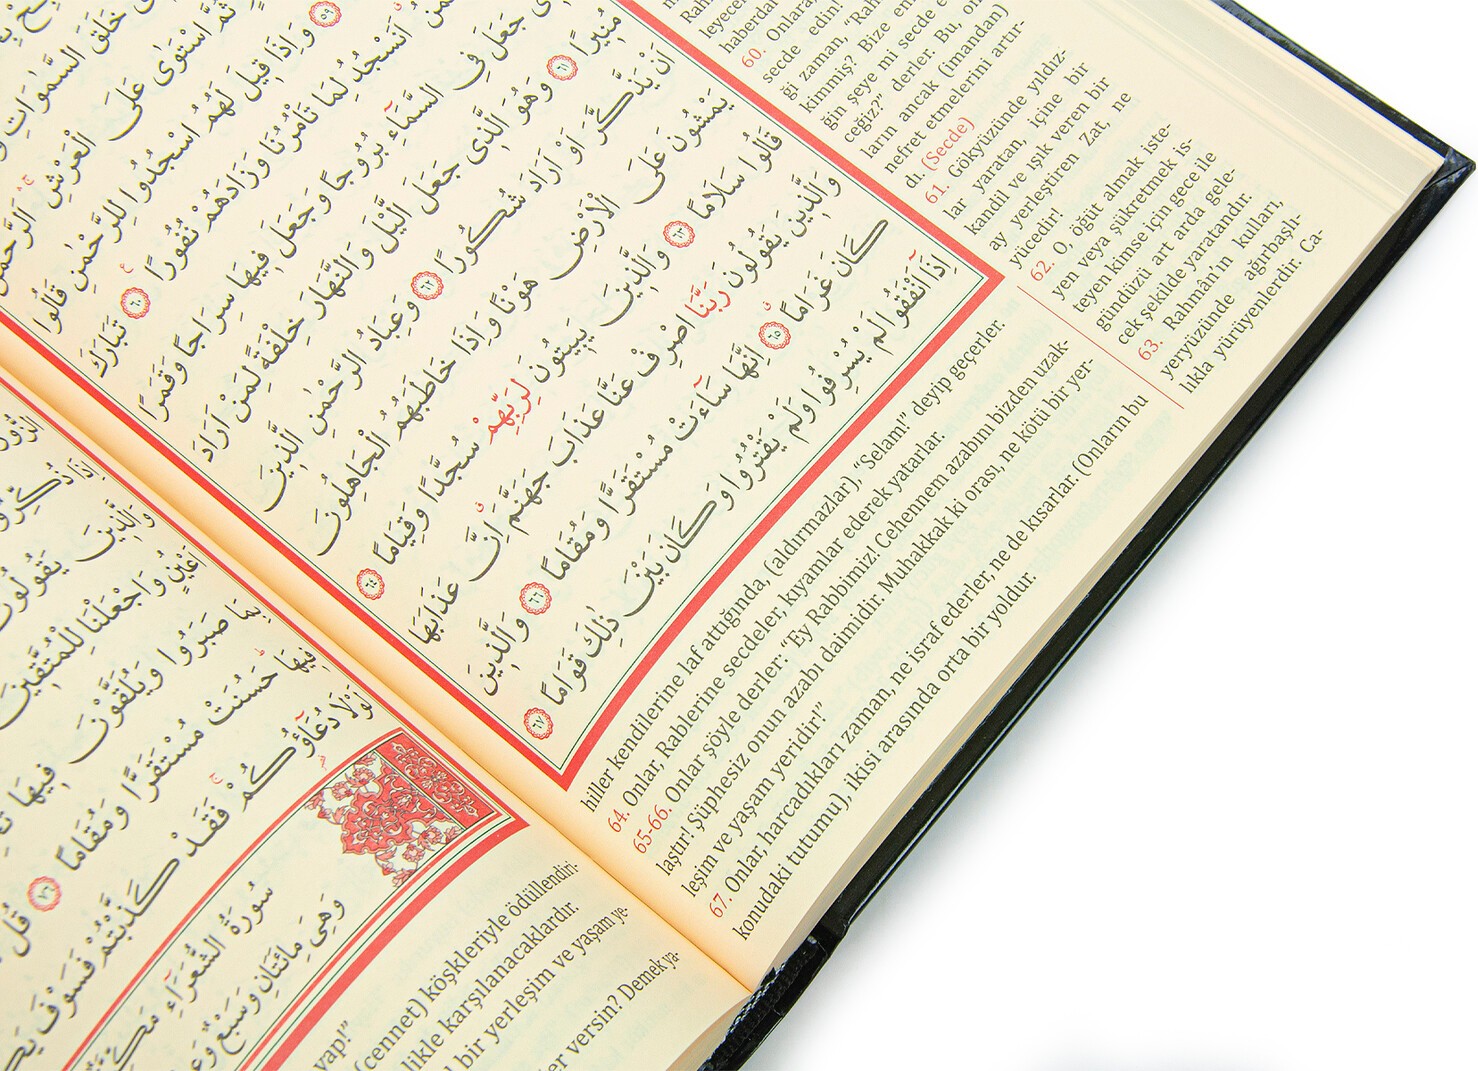 ثُمَّ اسْتَوٰى عَلَى الْعَرْشِ
﴿٥٩﴾ وَاِذَا قِيلَ لَهُمُ اسْجُدُوا لِلرَّحْمٰنِ قَالُوا
اَنَسْجُدُ لِمَا تَأْمُرُنَا وَزَادَهُمْ نُفُورًا ﴿٦٠﴾ تَبَارَكَ
جَعَلَ فِي السَّمَٓاءِ بُرُوجًا وَجَعَلَ فِيهَا سِرَاجًا وَقَمَرًا
مُنِيرًا ﴿٦١﴾ وَهُوَ الَّذِي جَعَلَ الَّيْلَ وَالنَّهَارَ خِلْفَةً لِمَنْ اَرَادَ
اَنْ يَذَّكَّرَ اَوْ اَرَادَ شُكُورًا ﴿٦٢﴾ وَعِبَادُ الرَّحْمٰنِ الَّذِينَ
يَمْشُونَ عَلَى الْاَرْضِ هَوْنًا وَاِذَا خَاطَبَهُمُ الْجَاهِلُونَ
قَالُوا سَلَامًا ﴿٦٣﴾ وَالَّذِينَ يَبِيتُونَ لِرَبِّهِمْ سُجَّدًا وَقِيَامًا ﴿٦٤﴾
وَالَّذِينَ يَقُولُونَ رَبَّنَا اصْرِفْ عَنَّا عَذَابَ جَهَنَّمَ اِنَّ عَذَابَهَا
كَانَ غَرَامًا ﴿٦٥﴾ اِنَّهَا سَٓاءَتْ مُسْتَقَرًّا وَمُقَامًا ﴿٦٦﴾ وَالَّذِينَ
اِذَٓا اَنْفَقُوا لَمْ يُسْرِفُوا وَلَمْ يَقْتُرُوا وَكَانَ بَيْنَ ذٰلِكَ قَوَامًا ﴿٦٧﴾
60. Onlara
secde edin!
ği zaman, "Rah
kimmiş? Bize em
ğin şeye mi secde e
ceğiz?" derler. Bu, on
ların ancak (imandan)
nefret etmelerini artır-
dı. (Secde)
61. Gökyüzünde yıldız-
lar yaratan, içine bir
kandil ve ışık veren bir
ay yerleştiren Zat, ne
yücedir!
62. O, öğüt almak iste-
yen veya şükretmek is-
teyen kimse için gece ile
gündüzü art arda gele-
cek şekilde yaratandır.
63. Rahmân'ın kulları,
yeryüzünde ağırbaşlı-
lıkla yürüyenlerdir. Ca-
hiller kendilerine laf attığında, (aldırmazlar), "Selam!" deyip geçerler.
64. Onlar, Rablerine secdeler, kıyamlar ederek yatarlar.
65-66. Onlar şöyle derler: "Ey Rabbimiz! Cehennem azabını bizden uzak-
laştır! Şüphesiz onun azabı daimidir. Muhakkak ki orası, ne kötü bir yer-
leşim ve yaşam yeridir!"
67. Onlar, harcadıkları zaman, ne israf ederler, ne de kısarlar. (Onların bu
konudaki tutumu), ikisi arasında orta bir yoldur.
وَالَّذِينَ يَقُولُونَ
اَعْيُنٍ وَاجْعَلْنَا لِلْمُتَّقِينَ
بِمَا صَبَرُوا وَيُلَقَّوْنَ فِيهَا
فِيهَا حَسُنَتْ مُسْتَقَرًّا وَمُقَامًا ﴿٧٦﴾ قُلْ
لَوْلَا دُعَٓاؤُ۬كُمْ فَقَدْ كَذَّبْتُمْ فَسَوْفَ
سُورَةُ الشُّعَرَٓاءِ
وَهِيَ مِائَتَانِ وَسَبْعٌ
yap!"
(cennet) köşkleriyle ödüllendiri-
likle karşılanacaklardır.
bir yerleşim ve yaşam ye-
er versin? Demek ya-